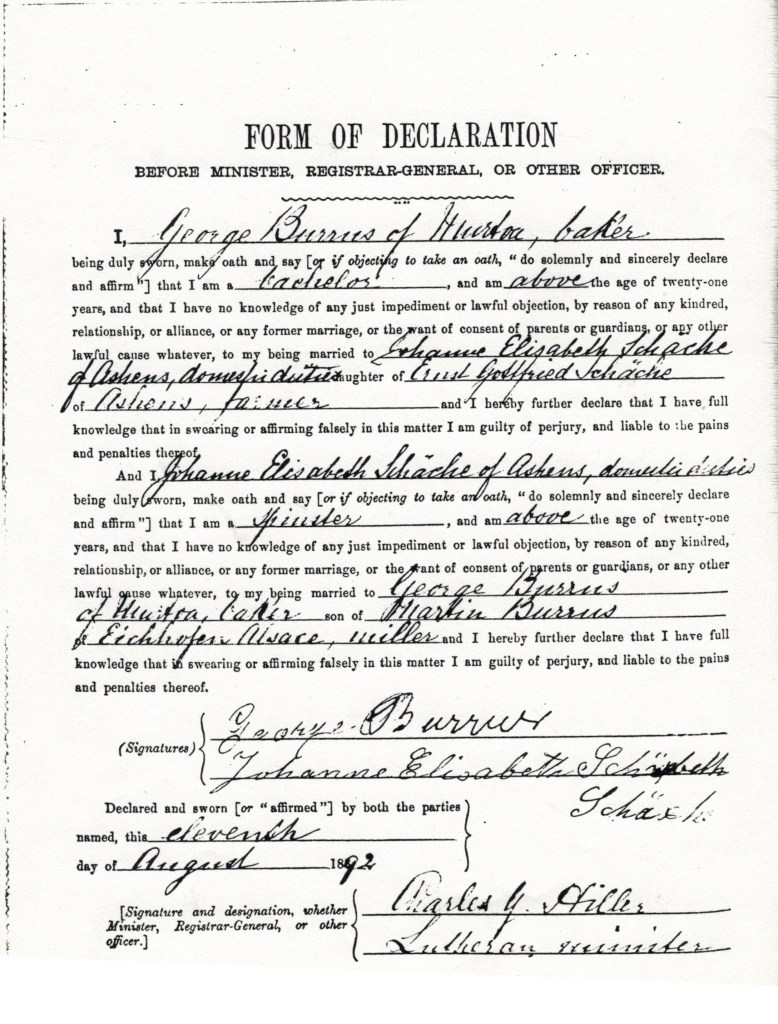 FORM OF DECLARATION
BEFORE MINISTER, REGISTRAR-GENERAL, OR OTHER OFFICER.
I, George Burrus of Murtoa, baker
being duly sworn, make oath and say [or if objecting to take an oath, "do solemnly and sincerely declare
and affirm"] that I am a bachelor, and am above the age of twenty-one
years, and that I have no knowledge of any just impediment or lawful objection, by reason of any kindred,
relationship, or alliance, or any former marriage, or the want of consent of parents or guardians, or any other
lawful cause whatever, to my being married to Johanne Elisabeth Schäche
of Ashens, domestic duties daughter of Ernst Gottfried Schäche
of Ashens, farmer and I hereby further declare that I have full
knowledge that in swearing or affirming falsely in this matter I am guilty of perjury, and liable to the pains
and penalties thereof.
And I, Johanne Elisabeth Schäche of Ashens, domestic duties
being duly sworn, make oath and say [or if objecting to take an oath, "do solemnly and sincerely declare
and affirm"] that I am a spinster, and am above the age of twenty-one
years, and that I have no knowledge of any just impediment or lawful objection, by reason of any kindred,
relationship, or alliance, or any former marriage, or the want of consent of parents or guardians, or any other
lawful cause whatever, to my being married to George Burrus
of Murtoa, baker son of Martin Burrus
of Eichhofen Alsace, miller and I hereby further declare that I have full
knowledge that in swearing or affirming falsely in this matter I am guilty of perjury, and liable to the pains
and penalties thereof.
(Signatures) George Burrus
Johanne Elisabeth
Schäche
Declared and sworn [or "affirmed"] by both the parties
named, this eleventh
day of August 1892
[Signature and designation, whether Minister, Registrar-General, or other officer.]
Charles G. Hiller
Lutheran minister